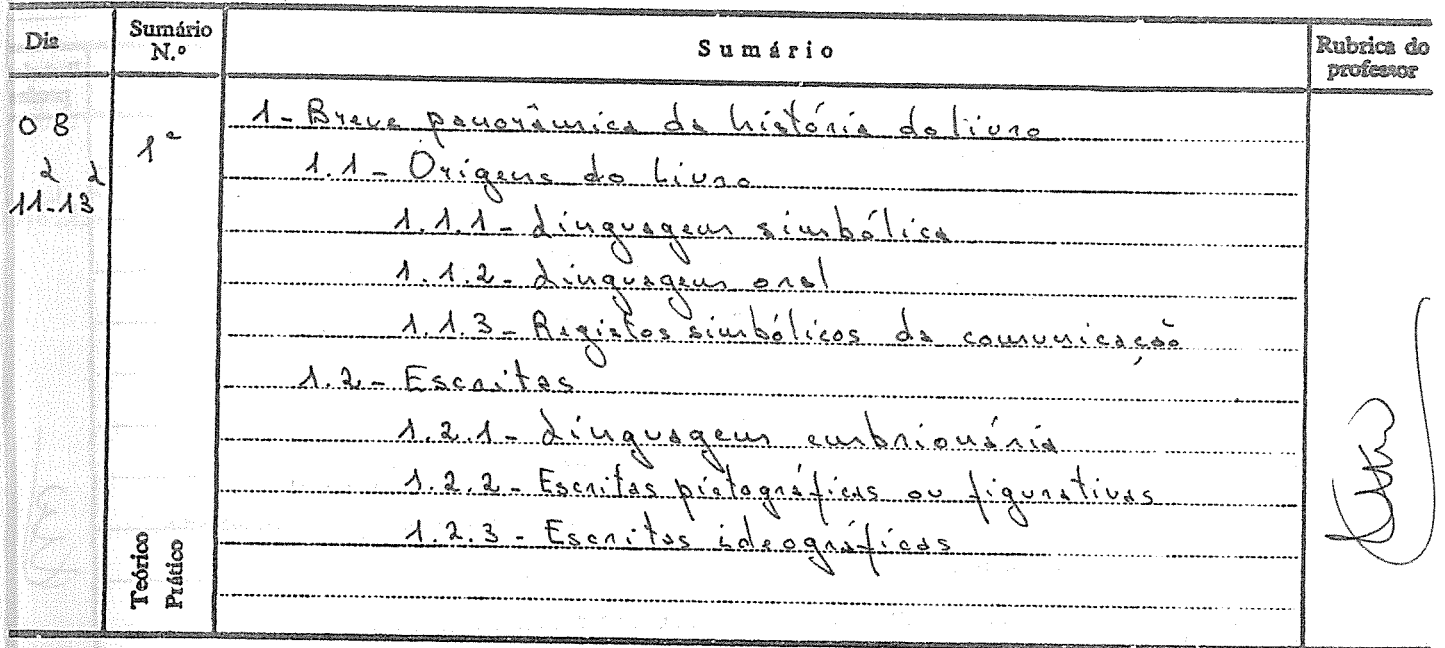 Dia
Sumário N.º
Sumário
Rubrica do professor
08
2 2
11-13
1ª
1- Breve panorâmica da história do livro
1.1- Origens do Livro
1.1.1- Linguagem simbólica
1.1.2- Linguagem oral
1.1.3- Registos simbólicos da comunicação
1.2- Escritas
1.2.1- Linguagem embrionária
1.2.2- Escritas pictográficas ou figurativas
1.2.3- Escritas ideográficas
Teórico
Prático